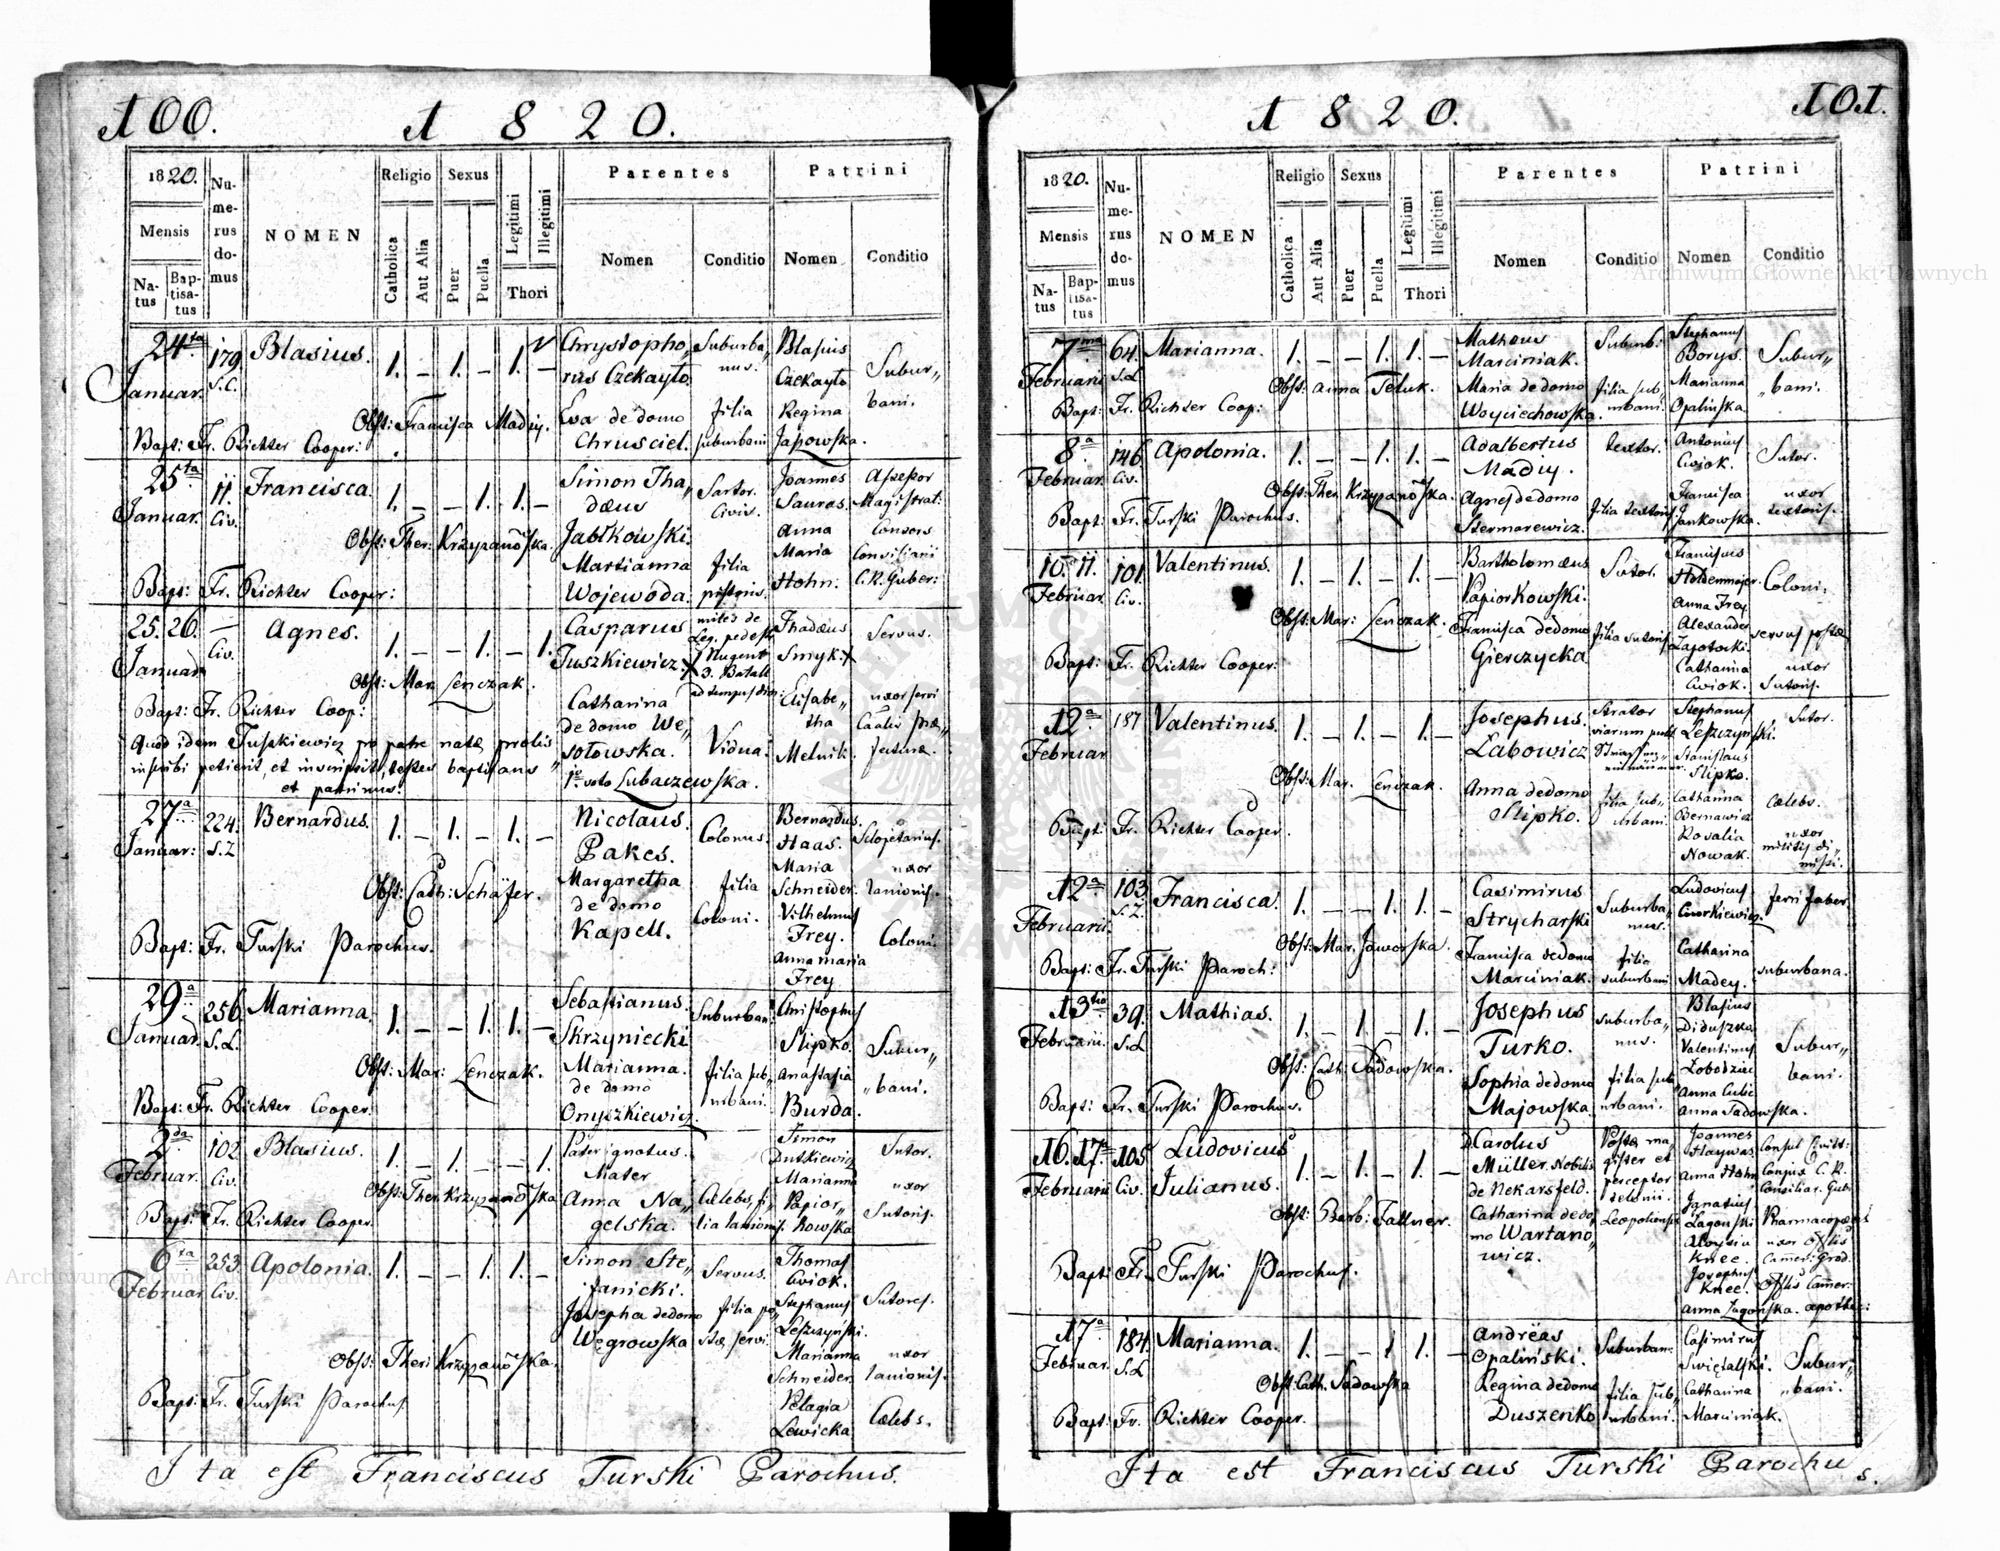 100.
1820.
1820.
Numerus domus
NOMEN
Religio
Sexus
Parentes
Patrini
Mensis
Natus
Baptisatus
Catholica
Aut Alia
Puer
Puella
Legitimi
Illegitimi
Thori
Nomen
Conditio
Nomen
Conditio
24ta Januar. 179 S.C. Blasius. 1. – 1. – 1. –
Chrystopho„ Suburba„ Blasius
rus Czekayto nus. Czekayto Subur„
Eva de domo filia Regina bani.
Chrusciel. suburbani Jassowska.
Obst: Francisca Madey.
Bapt: Fr. Richter Cooper:
25ta Januar. 11. Civ. Francisca. 1. – – 1. 1. –
Simon Tha„ Sartor. Joannes Assessor
dæus Civis. Sauras. Magistrat:
Jabłkowski. Anna Consors
Marianna filia Maria Consiliarii
Wojewoda. pistoris. Hohn. C.R. Guber:
Obst: Ther: Krzyzanowska.
Bapt: Fr. Richter Cooper:
25. 26. Januar. – Civ. Agnes. 1. – – 1. – 1.
Casparus miles de Thadæus Servus.
Leg. pedest.
Tuszkiewicz. Nugent Smyk.
3. Batall
Catharina Elisabe„ uxor servi
de domo We„ tha
sołowska. Vidua. Melnik.
1o voto Lubaczewska.
Obst: Mar. Lenczak.
Bapt: Fr. Richter Coop:
Quod idem Tuszkiewicz pro patre natæ prolis
inscribi petierit, et inscripsit, testes baptisans
et patrinus.
27a Januar: 224. S.Z Bernardus. 1. – 1. – 1. –
Nicolaus. Colonus. Bernardus. Sclopetarius.
Pakes. Haas.
Margaretha filia Maria uxor
de domo Coloni. Schneider. lanionis.
Kapell. Vilhelmus
Frey. Coloni.
Anna Maria
Frey
Obst: Cath: Schäfer.
Bapt: Fr. Turski Parochus.
29a Januar. 256. S.L. Marianna. 1. – – 1. 1. –
Sebastianus. Suburban: Christophus
Skrzyniecki Slipko. Subur„
Marianna. filia sub„ Anastasia „bani.
de domo urbani.
Onyszkiewicz Burda.
Obst: Mar: Lenczak.
Bapt: Fr. Richter Cooper.
2da Februar. 102 Civ. Blasius. 1. – 1. – – 1.
Pater ignotus. Simon Sutor.
Mater Dutkiewicz
Anna Na„ Cælebs, fi„ Marianna uxor
gelska. lia lanionis. Papior„ Sutoris.
kowska
Obst: Ther: Krzyzanowska
Bapt: Fr. Richter Cooper.
6ta Februar. 253 Civ. Apolonia. 1. – – 1. 1. –
Simon Ste„ Servus. Thomas
fanicki. Cwiok. Sutores.
Josepha de domo filia po„ Stephanus
Węgrowska stæ servi. Leszczyński.
Marianna uxor
Schneider lanionis.
Pelagia Cælebs.
Lewicka
Obst: Ther: Krzyzanowska.
Bapt: Fr. Turski Parochus.
Ita est Franciscus Turski Parochus.
101.
1820.
1820.
Numerus domus
NOMEN
Religio
Sexus
Parentes
Patrini
Mensis
Natus
Baptisatus
Catholica
Aut Alia
Puer
Puella
Legitimi
Illegitimi
Thori
Nomen
Conditio
Nomen
Conditio
7ma Februarii 64. S.L Marianna. 1. – – 1. 1. –
Matheus Suburb: Stephanus
Marciniak. Borys. Subur„
Maria de domo filia sub„ Marianna „bani.
Woyciechowska. urbani. Opalinska.
Obst: Anna Teluk.
Bapt: Fr. Richter Coop:
8a Februar. 146. Civ. Apolonia. 1. – – 1. 1. –
Adalbertus textor. Antonius Sutor.
Madey. Cwiok.
Agnes de domo filia textoris. Francisca uxor
Stermarewicz. Jankowska. textoris.
Obst: Ther. Krzyzanowska.
Bapt: Fr. Turski Parochus.
10. 11. Februar. 101. Civ. Valentinus. 1. – 1. – 1. –
Bartholomæus Sutor. Franciscus
Papiorkowski. Holdenmajer. Coloni.
Anna Frey
Francisca de domo filia sutoris Alexander servus postæ
Gierczycka Zapotocki.
Catharina uxor
Cwiok. Sutoris.
Obst: Mar: Lenczak.
Bapt: Fr. Richter Cooper:
12a Februar 187 Valentinus. 1. – 1. – 1. –
Josephus. Strator Stephanus Sutor.
Labowicz viarum publ Leszczynski.
Stanislaus
Slipko.
Anna de domo filia sub„ Catharina cælebs.
Slipko. urbani. Bernawicz
Rosalia uxor
Nowak. militis di„
missi.
Obst: Mar. Lenczak.
Bapt: Fr. Richter Cooper.
12a Februarii. 103. S.Z. Francisca. 1. – – 1. 1. –
Casimirus Suburba„ Ludovicus ferri faber.
Strycharski nus. Cworkiewicz.
Francisca de domo filia Catharina suburbana.
Marciniak. suburbani Madey.
Obst: Mar. Jaworska.
Bapt: Fr. Turski Paroch:
13tia Februarii. 39. S.L Mathias. 1. – 1. – 1. –
Josephus suburba„ Blasius
Turko. nus. Diduszka Subur„
Valentinus bani.
Sophia de domo filia sub„ Łobodziec
Majowska urbani. Anna Cubic
Anna Sadowska.
Obst: Cath: Sadowska.
Bapt: Fr. Turski Parochus.
16. 17a Februarii 105 Civ. Ludovicus Julianus. 1. – 1. – 1. –
Carolus Postæ ma„ Joannes Consul Civitt:
Müller Nobilis gister et Haywas.
de Nekarsfeld. perceptor Anna Hohn Conjux C.R.
telonii. Consiliar. Gub.
Catharina de do„ Leopoliensis Ignatius Pharmacopæus
mo Wartano„ Łagonski
wicz. Aloysia uxor
Knee. Camer: Grod.
Josephus
Knee.
Anna Łagonska.
Obst: Barb: Fallner.
Bapt: Fr. Turski Parochus.
17a Februar. 184. S.L Marianna. 1. – – 1 1. –
Andrëas Suburban: Casimirus
Opaliński. Swiętalski. Subur„
Regina de domo filia sub„ Catharina „bani.
Duszenko urbani. Marciniak.
Obst: Cath. Sadowska
Bapt: Fr. Richter Cooper.
Ita est Franciscus Turski Parochus.
Archiwum Główne Akt Dawnych
Archiwum Główne Akt Dawnych